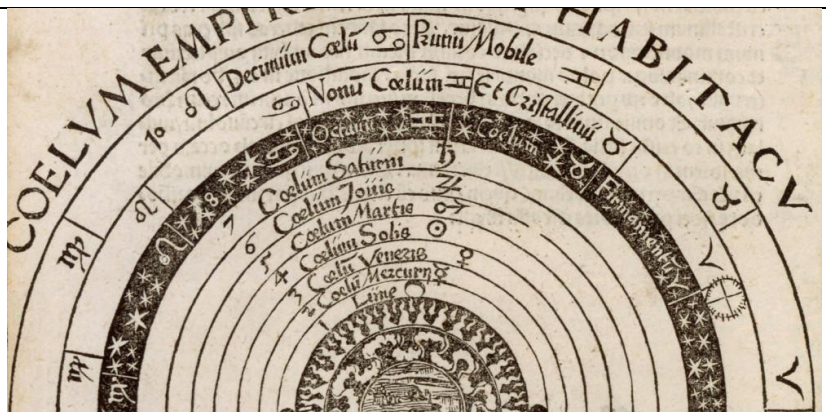 COELVM EMPIRE HABITACV
Decimum Cœlũ ♋ Primũ Mobile ♊
Nonũ Cœlum ♊ Et Cristallinũ ♉
Octauũ ♊ Cœlum ♉ Firmamentũ
7 Cœlum Saturni ♄
6 Cœlum Jouis ♃
5 Cœlum Martis ♂
4 Cœlum Solis ☉
3 Cœlũ Veneris ♀
2 Cœlũ Mercurij ☿
1 Lune